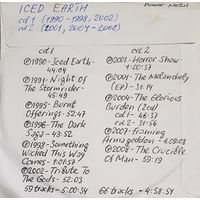 ICED EARTH
Power Metal
cd 1 (1990-1998, 2002)
cd 2 (2001, 2004-2008)
cd 1
①1990-Iced Earth-
44:04
②1991-Night Of
The Stormrider-
45:49
③1995-Burnt
Offerings-52:47
④1996-The Dark
Saga-43:52
⑤1998-Something
Wicked This Way
Comes-1:01:57
⑥2002-Tribute To
The Gods-52:03
59 tracks-5:00:34
cd 2
①2001-Horror Show-
1:00:37
②2001-The Melancholy
(EP)-31:14
③2004-The Glorious
Burden (2cd)
cd1-46:37
cd2-31:56
④2007-Framing
Armageddon-1:09:08
⑤2008-The Crucible
Of Man-59:19
66 tracks-4:58:54